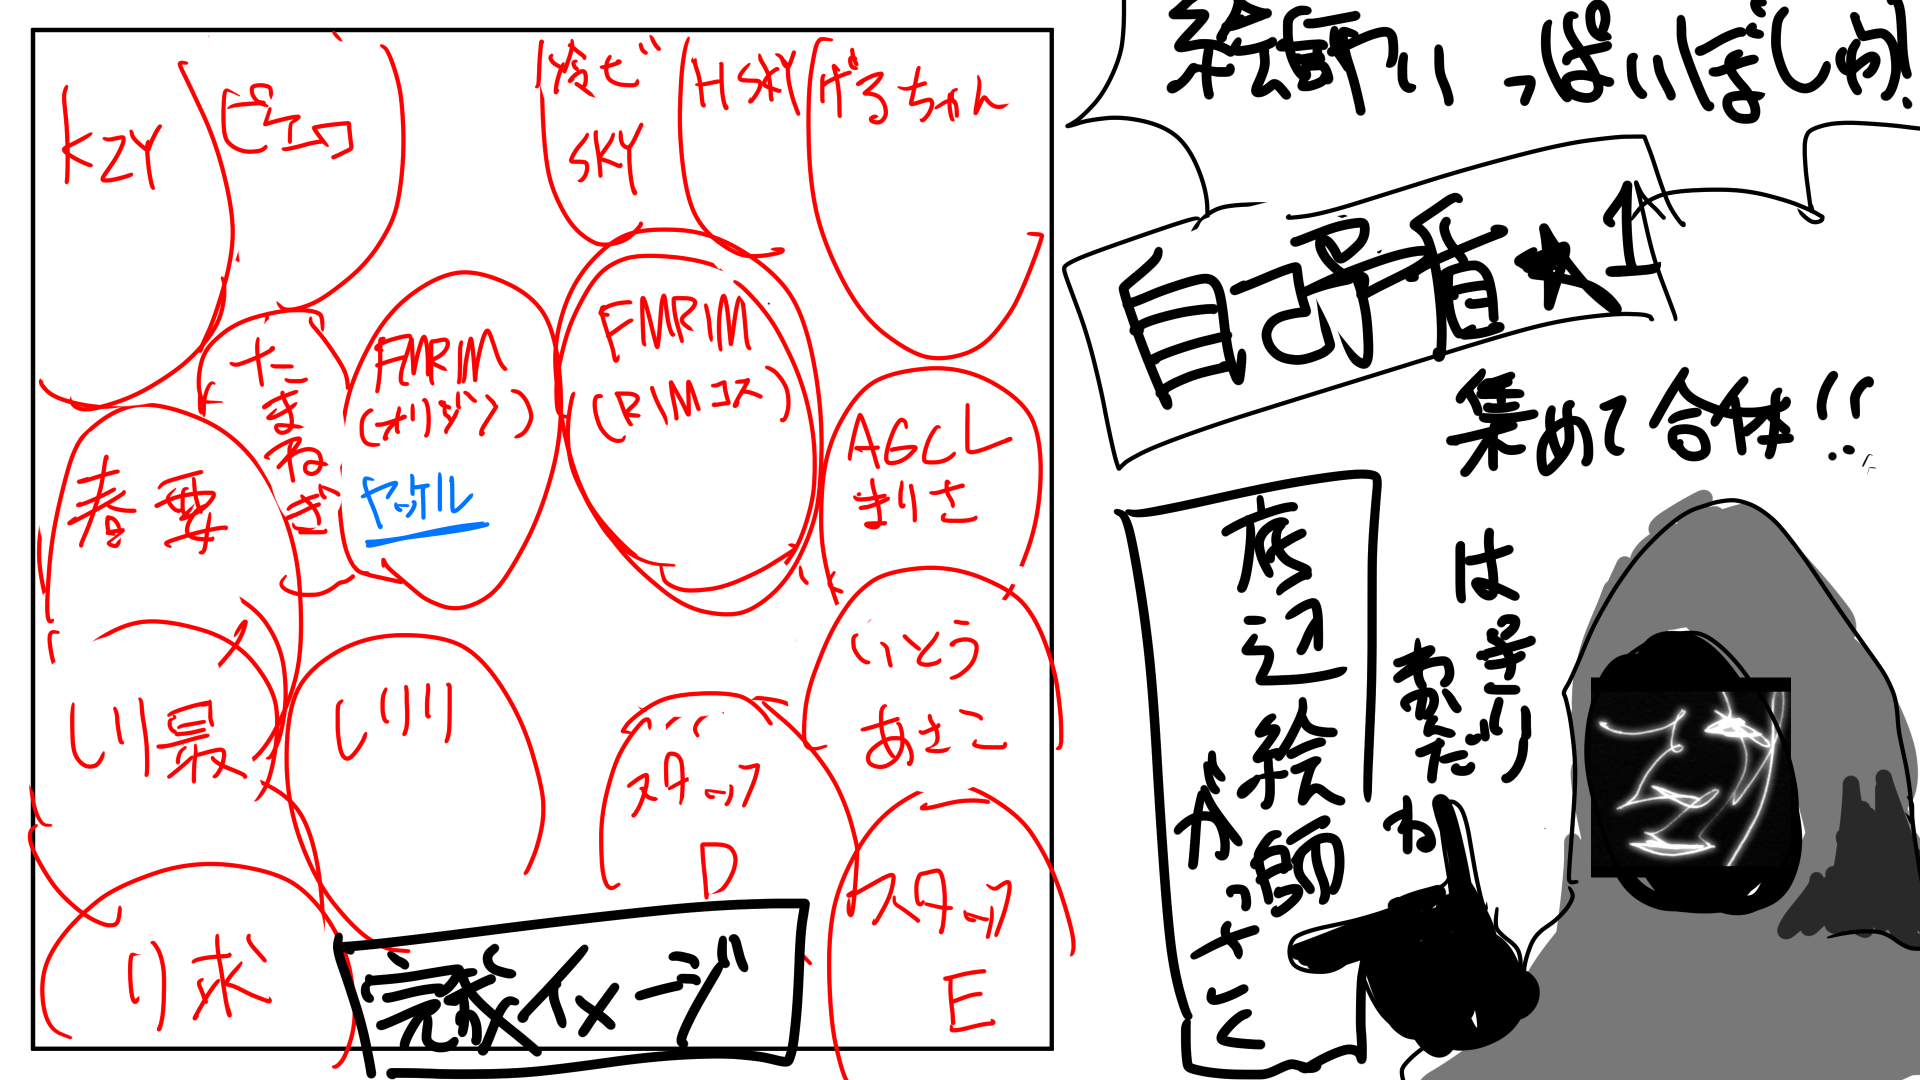 KZY
ピエロ
冷ビ
SKY
HSKY
げるちゃん
たまねぎ
FMRIM
(オリジン)
ヤッケル
FMRIM
(RIMコス)
AGCL
まりさ
春要
いとう
あさこ
しり最
しりり
スタッフ
D
り求
スタッフ
E
完成イメージ
絵師いっぱいぼしゅう!
自己矛盾★1
集めて合体!!
底辺絵師
がっさく